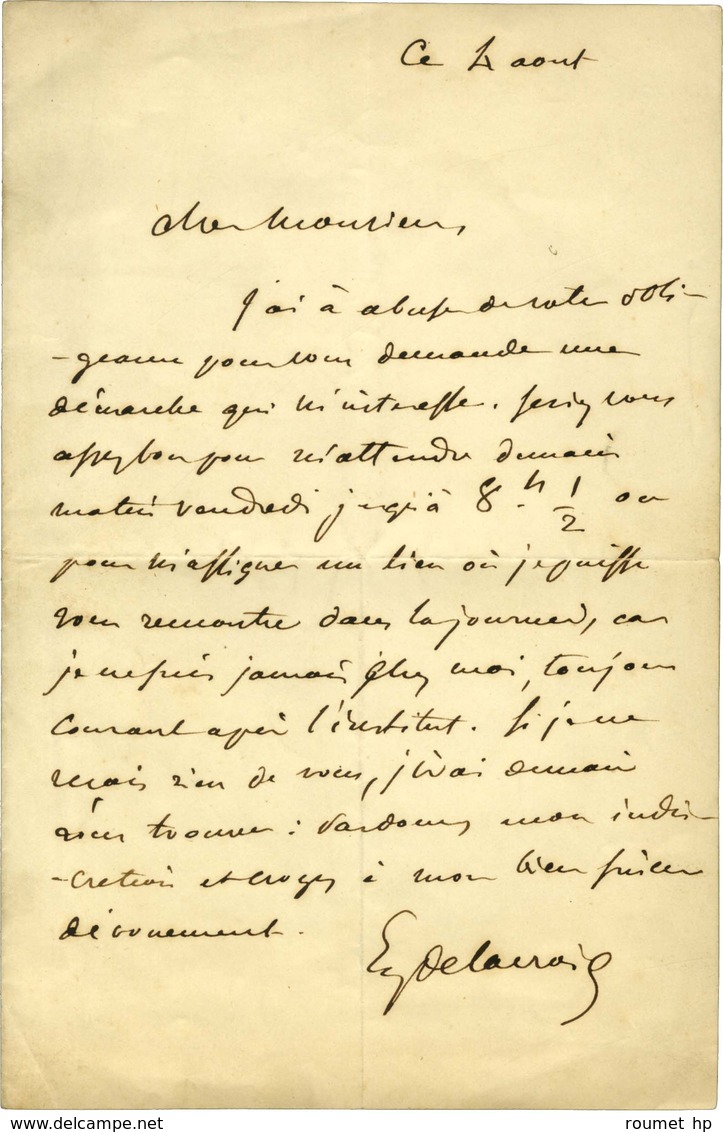 Ce 4 aout
cher Monsieur,
j'ai à abuser de votre obli-
-geance pour vous demander une
démarche qui m'intéresse. Seriez vous
assez bon pour m'attendre demain
matin vendredi jusqu'à 8.h 1/2 ou
pour m'assigner un lieu où je puisse
vous rencontrer dans la journée, car
je ne suis jamais chez moi, toujours
courant après l'institut. Si je ne
reçois rien de vous, j'irai demain
vous trouver : Pardonnez mon indis-
-cretion et croyez à mon bien sincère
dévouement.
Eug Delacroix
www.delcampe.net
roumet hp